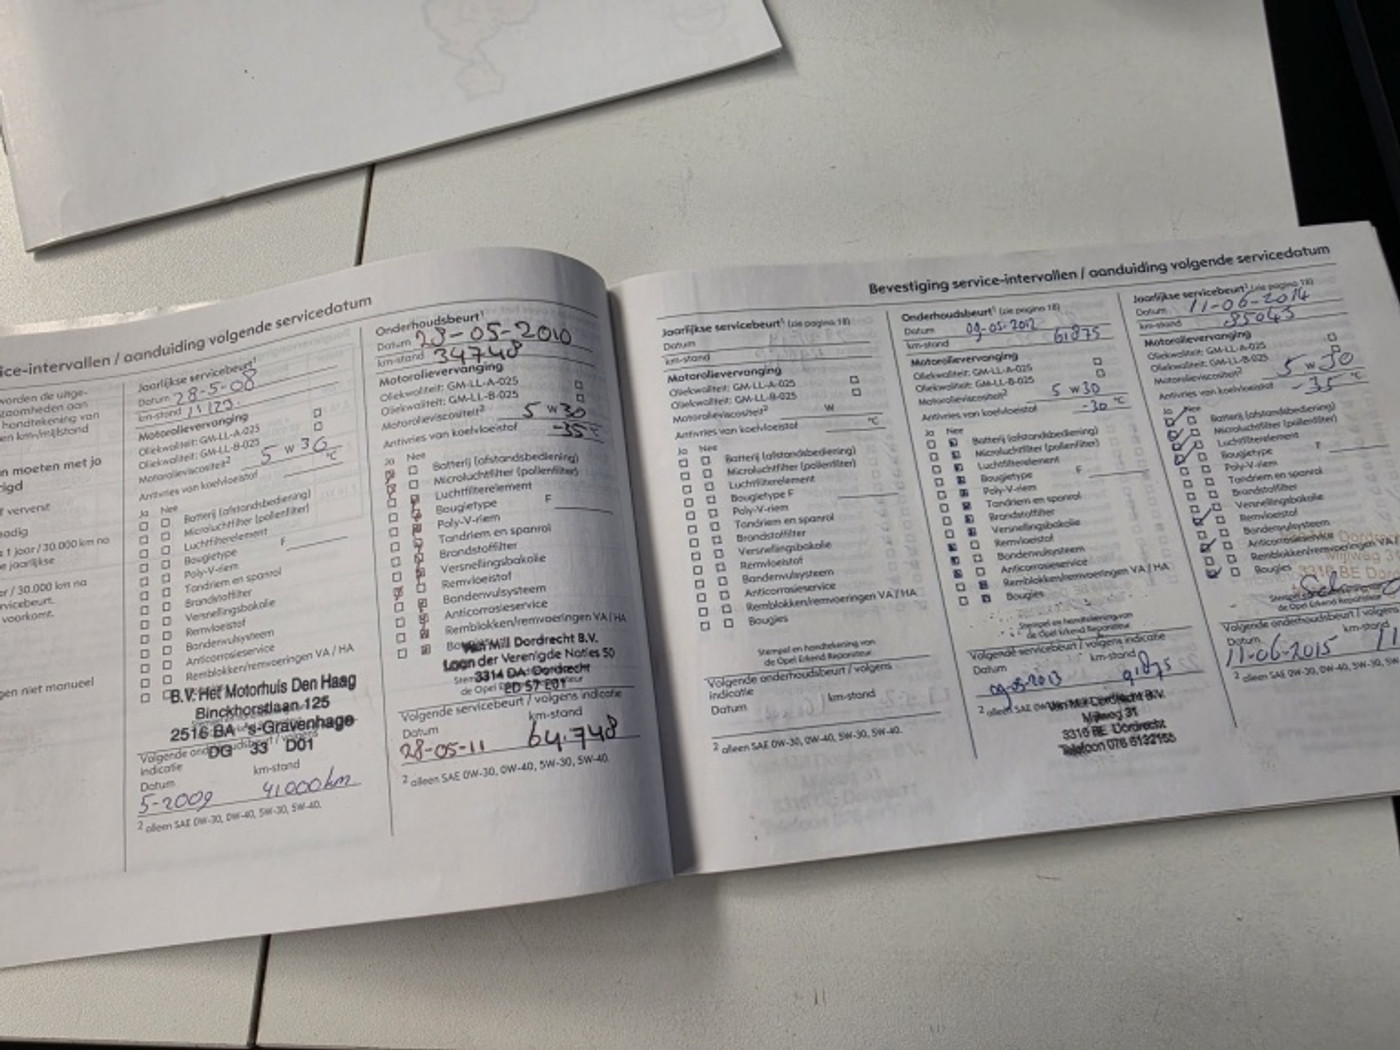 ice-intervallen / aanduiding volgende servicedatum
worden de uitge-
zaamheden aan
n handtekening van
en km/mijlstand
n moeten met ja
rigd
f vervent
nodig
s 1 jaar / 30.000 km na
e jaarlijkse
ar / 30.000 km na
rvicebeurt.
voorkomt.
gen niet manueel
Jaarlijkse servicebeurt¹
Datum 28-5-08
km-stand 11129.
Motorolievervanging
Oliekwaliteit: GM-LL-A-025
Oliekwaliteit: GM-LL-B-025
Motorolieviscositeit² 5 w 30
Antivries van koelvloeistof °C
Ja Nee
Batterij (afstandsbediening)
Microluchtfilter (pollenfilter)
Luchtfilterelement
Bougietype F
Poly-V-riem
Tandriem en spanrol
Brandstoffilter
Versnellingsbakolie
Remvloeistof
Bandenvulsysteem
Anticorrosieservice
Remblokken/remvoeringen VA / HA
B.V. Het Motorhuis Den Haag
Binckhorstlaan 125
2516 BA 's-Gravenhage
DG 33 D01
Volgende onderhoudsbeurt / volgens
indicatie
Datum km-stand
5-2009 41000km
² alleen SAE 0W-30, 0W-40, 5W-30, 5W-40.
Onderhoudsbeurt¹
Datum 28-05-2010
km-stand 34748
Motorolievervanging
Oliekwaliteit: GM-LL-A-025
Oliekwaliteit: GM-LL-B-025
Motorolieviscositeit² 5 w 30
Antivries van koelvloeistof -35 °C
Ja Nee
Batterij (afstandsbediening)
Microluchtfilter (pollenfilter)
Luchtfilterelement
Bougietype F
Poly-V-riem
Tandriem en spanrol
Brandstoffilter
Versnellingsbakolie
Remvloeistof
Bandenvulsysteem
Anticorrosieservice
Remblokken/remvoeringen VA / HA
Van Mill Dordrecht B.V.
Laan der Verenigde Naties 50
3314 DA Dordrecht
ED 57 E01
Volgende servicebeurt / volgens indicatie
Datum km-stand
28-05-11 64.748
² alleen SAE 0W-30, 0W-40, 5W-30, 5W-40.
Bevestiging service-intervallen / aanduiding volgende servicedatum
Jaarlijkse servicebeurt¹ (zie pagina 18)
Datum
km-stand
Motorolievervanging
Oliekwaliteit: GM-LL-A-025
Oliekwaliteit: GM-LL-B-025
Motorolieviscositeit² W
Antivries van koelvloeistof °C
Ja Nee
Batterij (afstandsbediening)
Microluchtfilter (pollenfilter)
Luchtfilterelement
Bougietype F
Poly-V-riem
Tandriem en spanrol
Brandstoffilter
Versnellingsbakolie
Remvloeistof
Bandenvulsysteem
Anticorrosieservice
Remblokken/remvoeringen VA / HA
Bougies
Stempel en handtekening van
de Opel Erkend Reparateur
Volgende onderhoudsbeurt / volgens
indicatie
Datum km-stand
² alleen SAE 0W-30, 0W-40, 5W-30, 5W-40.
Onderhoudsbeurt¹ (zie pagina 18)
Datum 09-05-2012
km-stand 61875
Motorolievervanging
Oliekwaliteit: GM-LL-A-025
Oliekwaliteit: GM-LL-B-025
Motorolieviscositeit² 5 w 30
Antivries van koelvloeistof -30 °C
Ja Nee
Batterij (afstandsbediening)
Microluchtfilter (pollenfilter)
Luchtfilterelement
Bougietype F
Poly-V-riem
Tandriem en spanrol
Brandstoffilter
Versnellingsbakolie
Remvloeistof
Bandenvulsysteem
Anticorrosieservice
Remblokken/remvoeringen VA / HA
Bougies
Stempel en handtekening van
de Opel Erkend Reparateur
Volgende servicebeurt / volgens indicatie
Datum km-stand
09-05-2013 91875
² alleen SAE
Van Mill Dordrecht B.V.
Mijlweg 31
3316 BE Dordrecht
Telefoon 078 6132155
Jaarlijkse servicebeurt¹ (zie pagina 18)
Datum 11-06-2014
km-stand 85043
Motorolievervanging
Oliekwaliteit: GM-LL-A-025
Oliekwaliteit: GM-LL-B-025
Motorolieviscositeit² 5 w 30
Antivries van koelvloeistof -35 °C
Ja Nee
Batterij (afstandsbediening)
Microluchtfilter (pollenfilter)
Luchtfilterelement
Bougietype F
Poly-V-riem
Tandriem en spanrol
Brandstoffilter
Versnellingsbakolie
Remvloeistof
Bandenvulsysteem
Anticorrosieservice
Remblokken/remvoeringen VA /
Bougies
3316 BE Dor
Stempel en handtekening van
de Opel Erkend Reparateur
Volgende onderhoudsbeurt / volgen
Datum km-stand
11-06-2015 11
² alleen SAE 0W-30, 0W-40, 5W-30, 5W